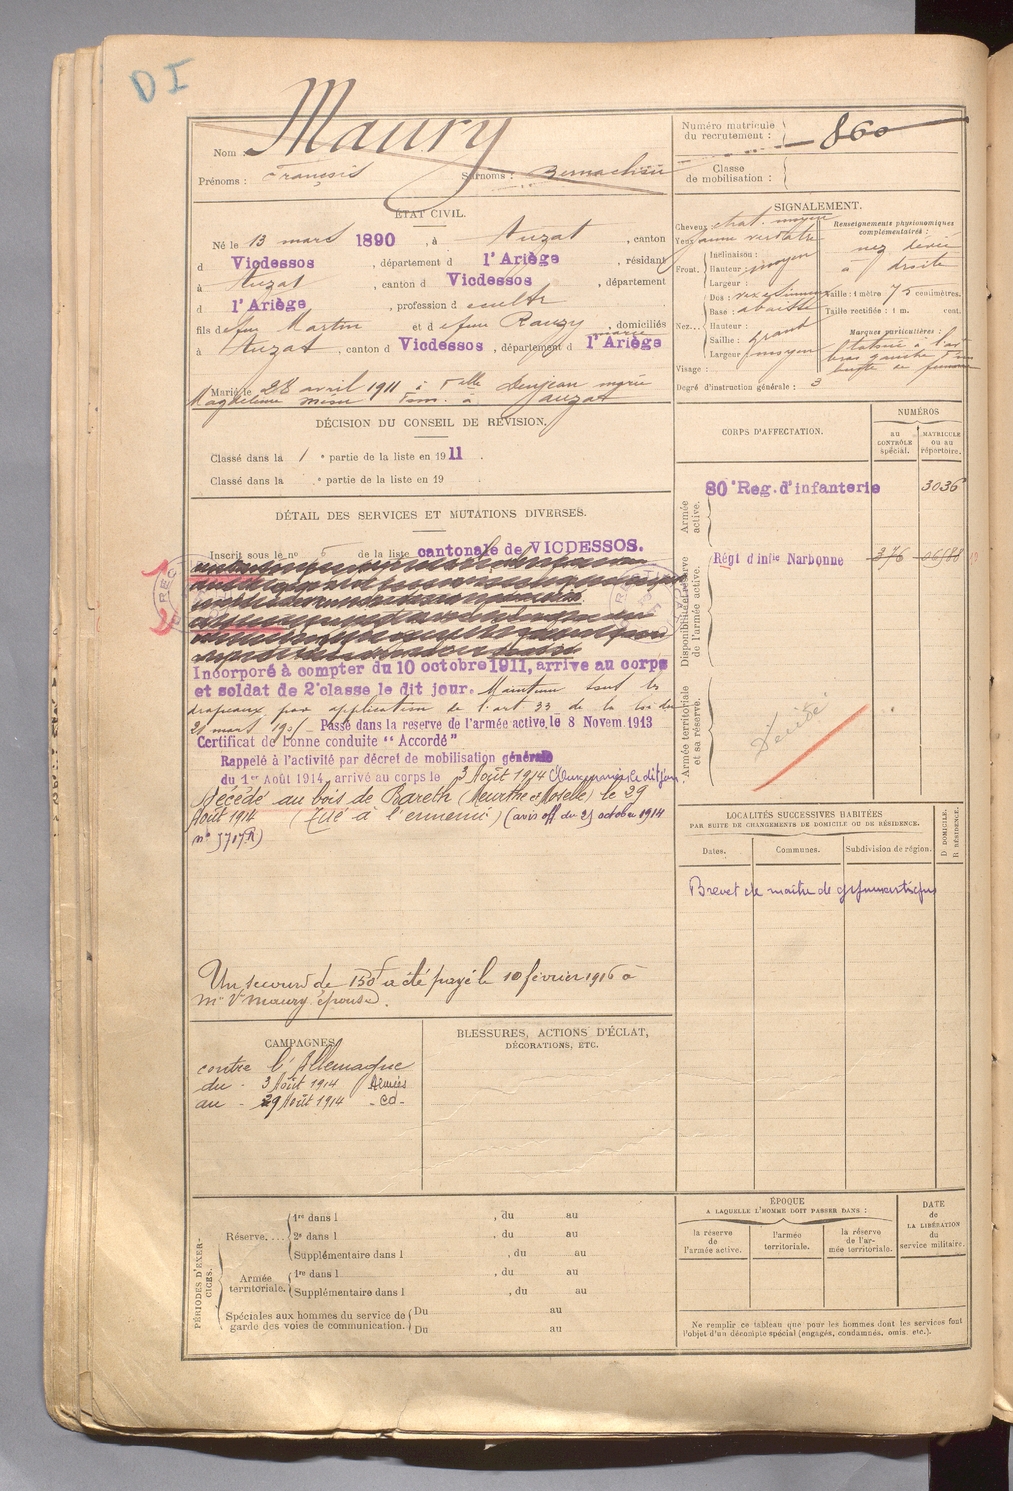 DI
Nom : Maury
Prénoms : François Surnoms :
Numéro matricule du recrutement : 860
Classe de mobilisation :
ÉTAT CIVIL.
Né le 13 mars 1890, à Auzat, canton
d Vicdessos, département d l'Ariège, résidant
à Auzat, canton d Vicdessos, département
d l'Ariège, profession d cultr
fils de feu Martin et de feue Rauzy marie, domiciliés
à Auzat, canton d Vicdessos, département d l'Ariège
Marié le 28 avril 1911 à Delle Denjean marie
Magdeleine
DÉCISION DU CONSEIL DE RÉVISION.
Classé dans la 1e partie de la liste en 1911.
Classé dans la e partie de la liste en 19 .
DÉTAIL DES SERVICES ET MUTATIONS DIVERSES.
Inscrit sous le no de la liste cantonale de VICDESSOS.
Incorporé à compter du 10 octobre 1911, arrivé au corps
et soldat de 2e classe le dit jour. Maintenu sous les
drapeaux par application de l'art 33 de la loi du
21 mars 1905 – Passé dans la reserve de l'armée active, le 8 Novem. 1913
Certificat de bonne conduite "Accordé"
Rappelé à l'activité par décret de mobilisation générale
du 1er Août 1914, arrivé au corps le 3 Août 1914
Décédé au bois de Bareth (Meurthe et Moselle) le 29
Août 1914 (Tué à l'ennemi) (avis off du 25 octobre 1914
no 5717R)
Un secours de 150f a été payé le 10 février 1916 à
me Ve Maury épouse.
CAMPAGNES
contre l'Allemagne
du - 3 Août 1914 Armées
au - 29 Août 1914
BLESSURES, ACTIONS D'ÉCLAT,
DÉCORATIONS, ETC.
SIGNALEMENT.
Cheveux chat. moyen
Yeux jaune verdâtre
Front. Inclinaison :
Hauteur : moyen
Largeur :
Nez... Dos :
Base : abaissée
Hauteur :
Saillie : grand
Largeur : moyen
Visage :
Renseignements physionomiques
complémentaires :
nez dévié
à droite
Taille : 1 mètre 75 centimètres.
Taille rectifiée : 1 m. cent.
Marques particulières :
bras gauche
buste de femme
Degré d'instruction générale : 3
CORPS D'AFFECTATION.
NUMÉROS
AU CONTRÔLE spécial.
MATRICULE OU AU répertoire.
Armée active.
80e Reg. d'infanterie 3036
Disponibilité et réserve de l'armée active.
Régt d'infie Narbonne 376
Armée territoriale et sa réserve.
LOCALITÉS SUCCESSIVES HABITÉES
PAR SUITE DE CHANGEMENTS DE DOMICILE OU DE RÉSIDENCE.
Dates.
Communes.
Subdivision de région.
D DOMICILE. R RÉSIDENCE.
Brevet de maître de gymnastique
PÉRIODES D'EXERCICES.
Réserve....
1re dans l , du au
2e dans l , du au
Supplémentaire dans l , du au
Armée territoriale.
1re dans l , du au
Supplémentaire dans l , du au
Spéciales aux hommes du service de garde des voies de communication.
Du au
Du au
ÉPOQUE
A LAQUELLE L'HOMME DOIT PASSER DANS :
la réserve de l'armée active.
l'armée territoriale.
la réserve de l'armée territoriale.
DATE de LA LIBÉRATION du service militaire.
Ne remplir ce tableau que pour les hommes dont les services font
l'objet d'un décompte spécial (engagés, condamnés, omis, etc.).